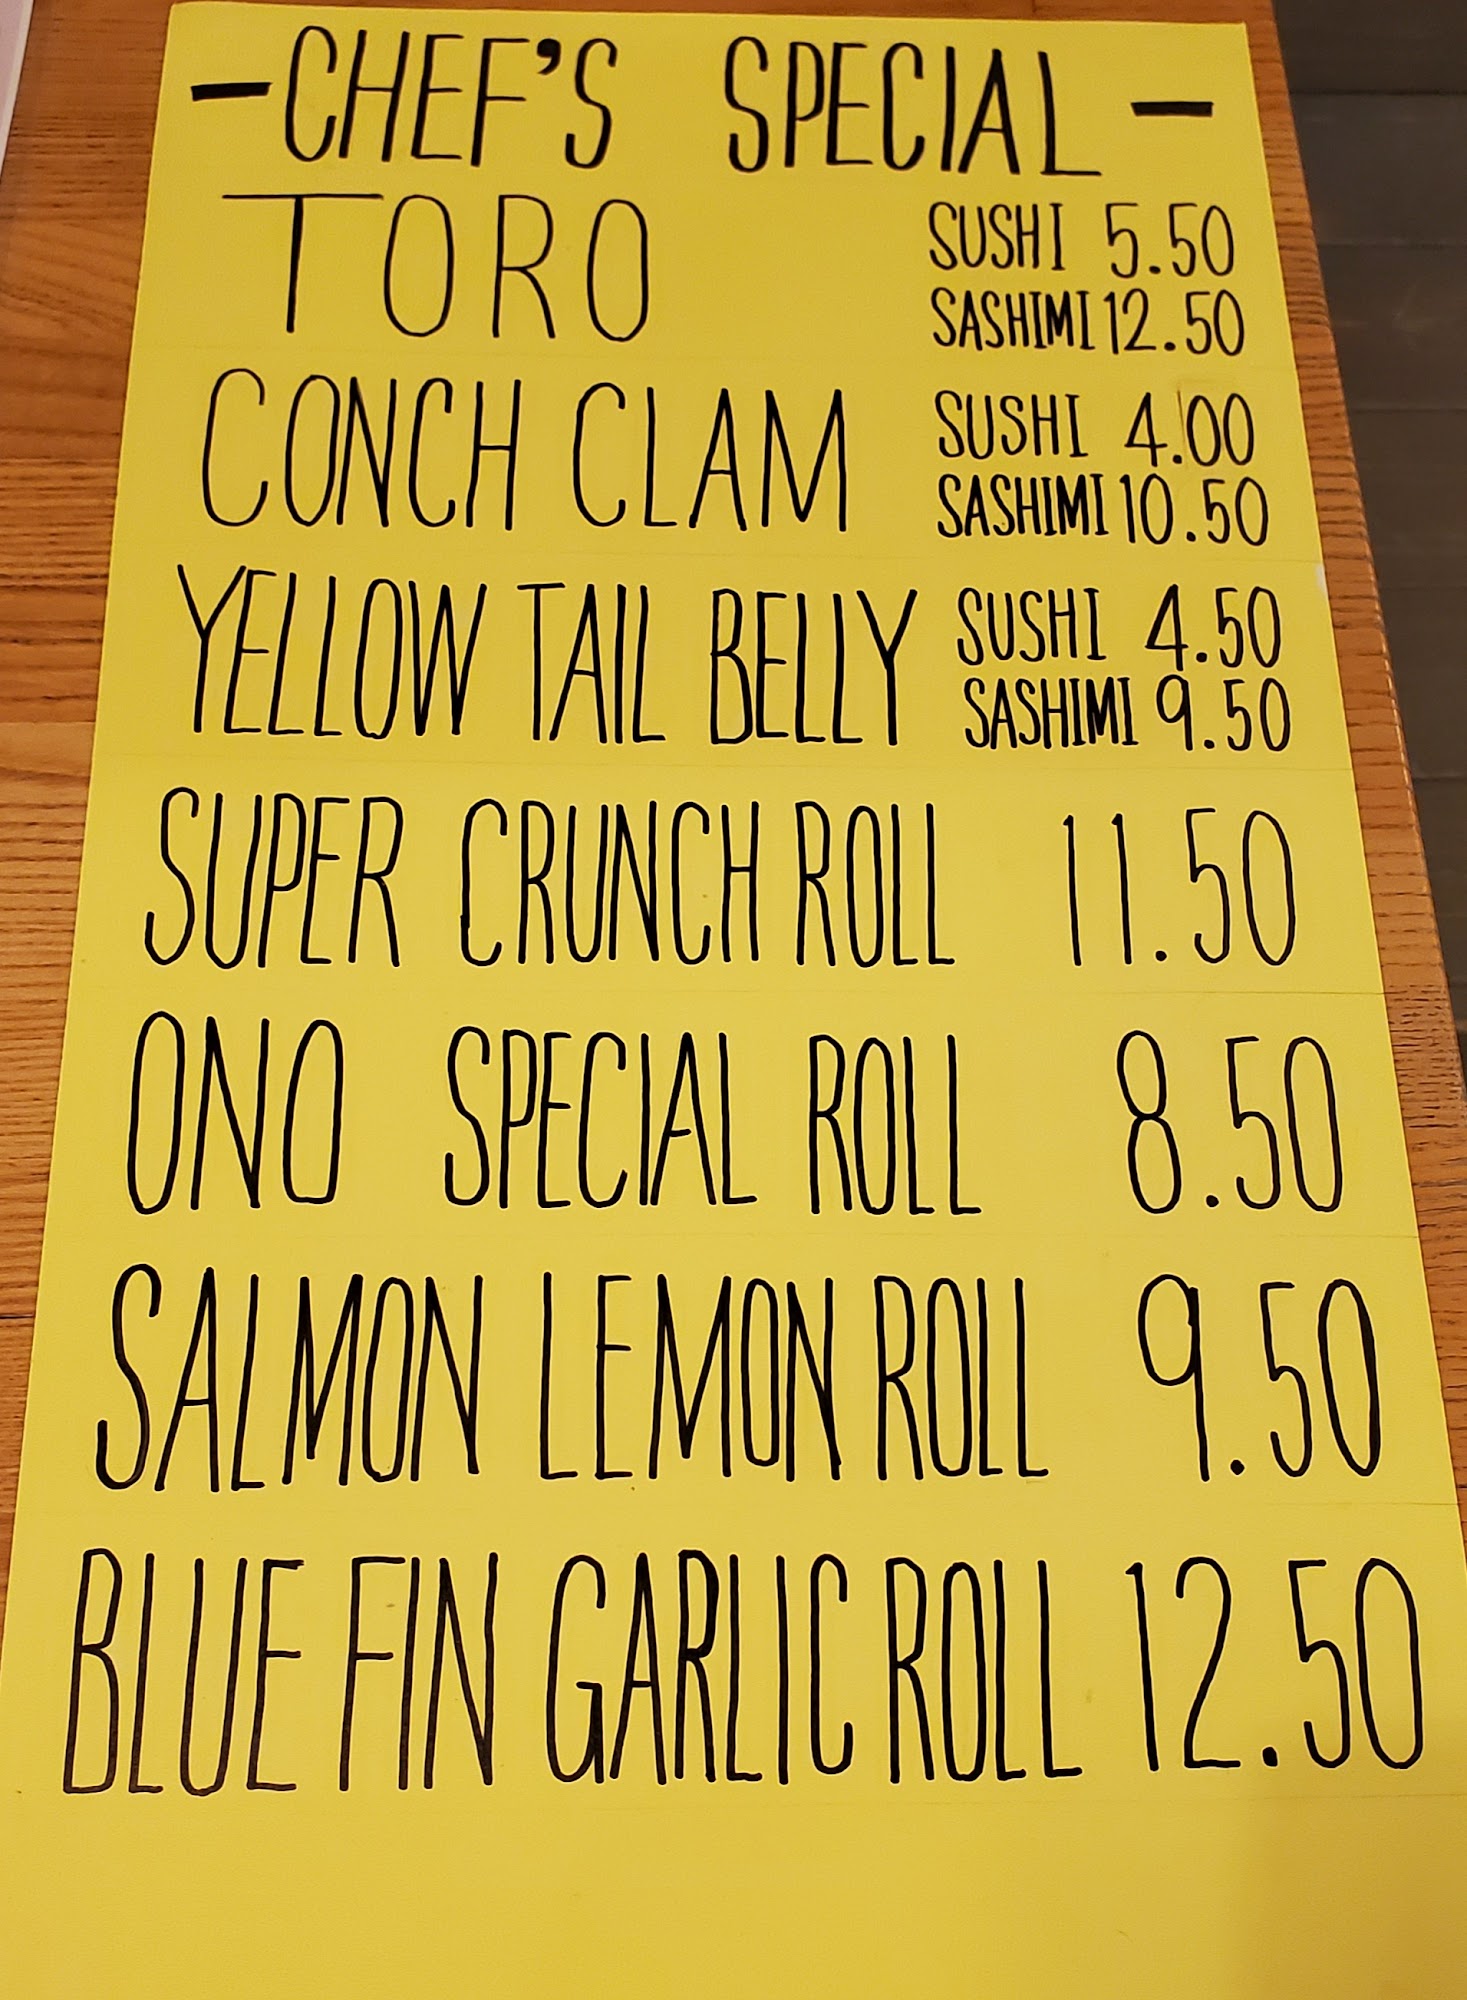 - CHEF'S SPECIAL -
TORO SUSHI 5.50
SASHIMI 12.50
CONCH CLAM SUSHI 4.00
SASHIMI 10.50
YELLOW TAIL BELLY SUSHI 4.50
SASHIMI 9.50
SUPER CRUNCH ROLL 11.50
ONO SPECIAL ROLL 8.50
SALMON LEMON ROLL 9.50
BLUE FIN GARLIC ROLL 12.50